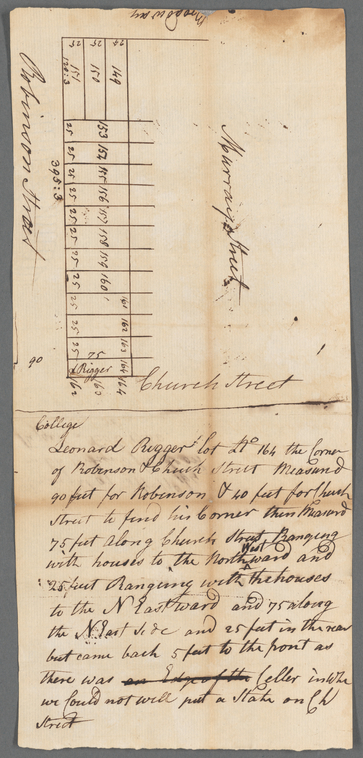 Broadway
25 25 25
151 150 149
120:3
Robinson Street
Murray Street
395:3
153 154 155 156 157 158 159 160
161 162 163 164
25 25 25 25 25 25 25 25 25 25
75
Rigger
162 163 164
90
Church Street
College
Leonard Rigger lot No 164 the Corner
of Robinson & Church Street Measurd
90 feet for Robinson & 40 feet for Church
Street to find his Corner then Measurd
75 feet along Church Street Ranging
with houses to the North West ward and
25 feet Ranging with the houses
to the N Eastward and 75 along
the N East side and 25 feet in the rear
but came back 5 feet to the pont as
there was an Edge of the Celler in the
we Could not well put a Stake on Ch
Street